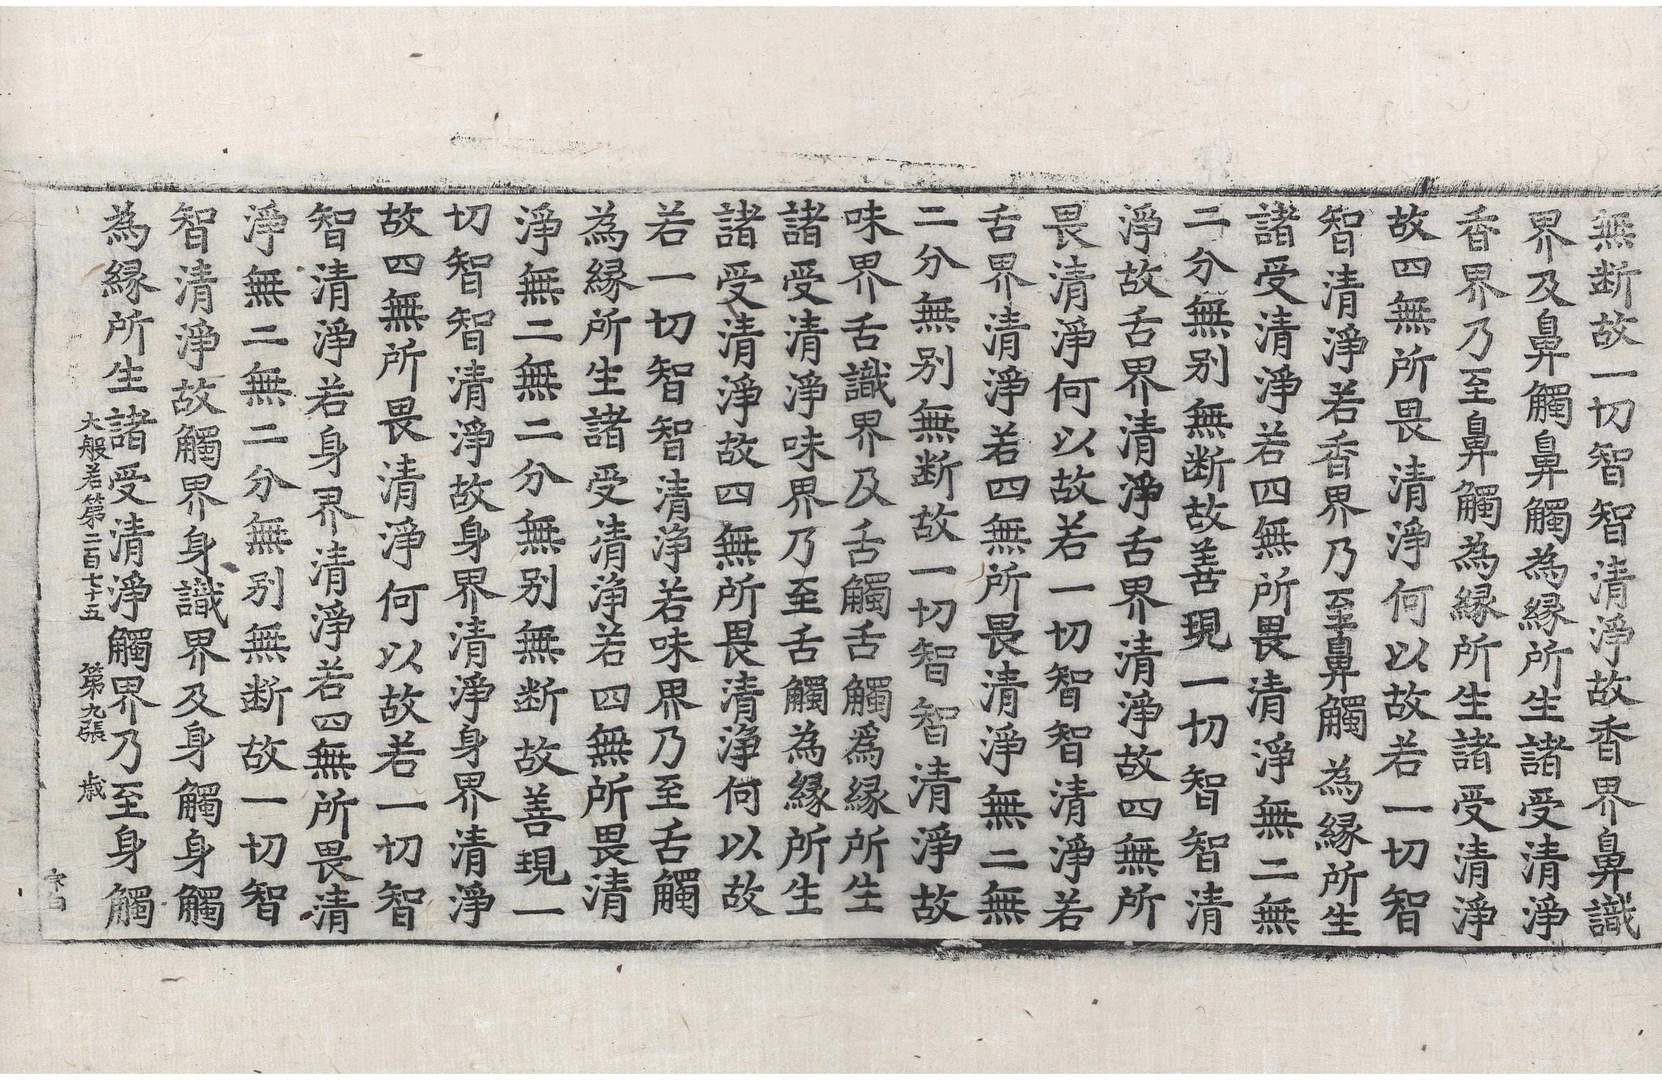 無断故一切智智清淨故香界鼻識
界及鼻觸鼻觸為縁所生諸受清淨
香界乃至鼻觸為縁所生諸受清淨
故四無所畏清淨何以故若一切智
智清淨若香界乃至鼻觸為縁所生
諸受清淨若四無所畏清淨無二無
二分無别無断故善現一切智智清
淨故舌界清淨舌界清淨故四無所
畏清淨何以故若一切智智清淨若
舌界清淨若四無所畏清淨無二無
二分無别無断故一切智智清淨故
味界舌識界及舌觸舌觸爲縁所生
諸受清淨味界乃至舌觸為縁所生
諸受清淨故四無所畏清淨何以故
若一切智智清淨若味界乃至舌觸
為縁所生諸受清淨若四無所畏清
淨無二無二分無别無断故善現一
切智智清淨故身界清淨身界清淨
故四無所畏清淨何以故若一切智
智清淨若身界清淨若四無所畏清
淨無二無二分無别無断故一切智
智清淨故觸界身識界及身觸身觸
為縁所生諸受清淨觸界乃至身觸
大般若第二百七十五 第九張 歳